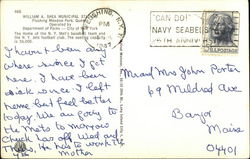 WILLIAM A. SHEA MUNICIPAL STADIUM
Flushing Meadow Park, Queens
Operated by
Department of Parks — City of New York
The home of the N. Y. Mets baseball team and
the N. Y. Jets football club. The seating capacity
is 55,000.
FLUSHING, N.Y.
PM
"CAN DO!"
NAVY SEABEES
I haven't been any
where since I got
here. I have been
sick since I left
home but feel better
today. We are going to
the Mets to morrow
Chuck has off Wed and
Mother
Mr and Mrs John Porter
69 Mildred Ave
Bangor
Maine
04401